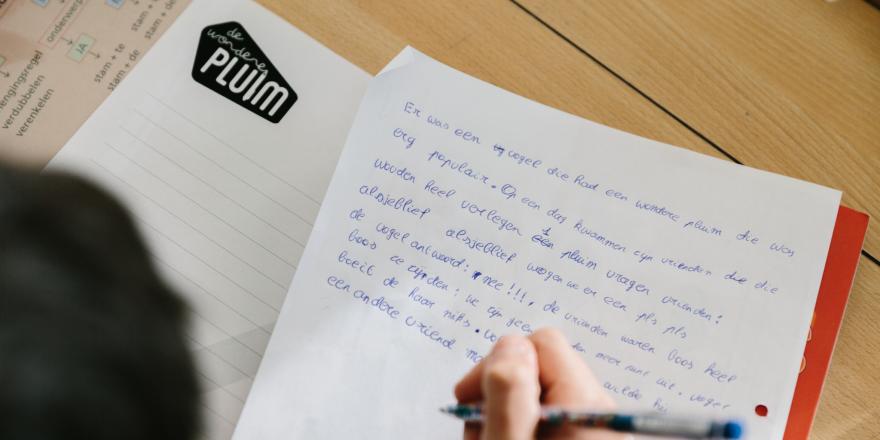 onderwerp
JA
stam + te
stam + de
stam + te
stam + de
verdubbelen
verenkelen
de
wondere
PLUIM
Er was een vogel die had een wondere pluim die was
erg populair. Op een dag kwammen zijn vrienden die die
wouden heel verlegen 1 pluim vragen vrienden:
alsjeblief alsjeblief mogen we er een pls pls
de vogel antwoord: nee!!!, de vrienden waren boos heel
boos ze zijden: we zijn geen meer
boeit de haar niks. wilde
een andere vriend